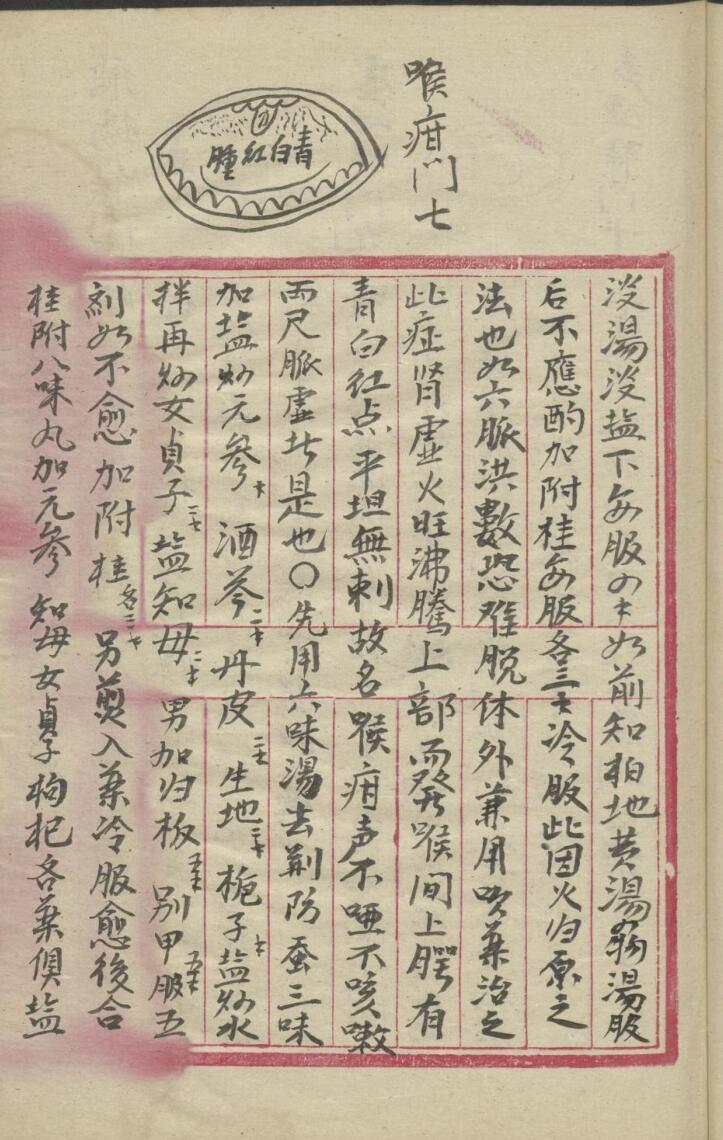 喉疳門七
青白红腫
没湯没盐下每服四钱如前知柏地黄湯药湯服
后不應酌加附桂每服各三钱冷服此因火归原之
法也如六脈洪數恐难脱体外兼用吹药治之
此症肾虚火旺沸騰上部而發喉间上腭有
青白红点平坦無刺故名喉疳声不哑不咳嗽
两尺脈虚者是也〇先用六味湯去荆防蚕三味
加盐炒元參 酒芩 丹皮 生地 栀子 盐炒水
拌再炒女貞子 盐知母 另加归板 别甲 服五
剂如不愈加附桂各 另煎入药冷服愈後合
桂附八味丸加元參 知母 女貞子 枸杞各药俱盐